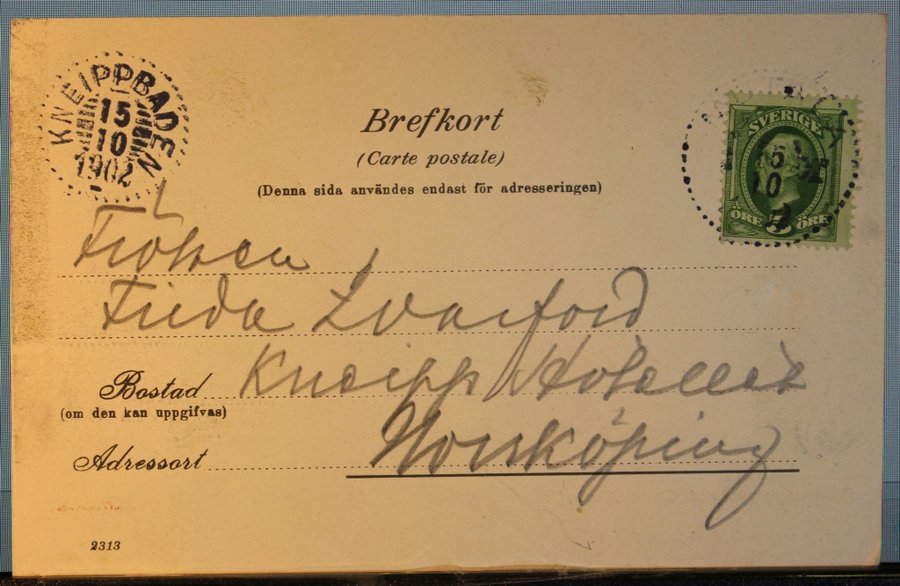 KNEIPPBADEN
15
10
1902
Brefkort
(Carte postale)
(Denna sida användes endast för adresseringen)
SVERIGE
15
10
ÖRE 5 ÖRE
Fröken
Frida
Bostad Kneipp Hotellet
(om den kan uppgifvas)
Adressort Norrköping
2313